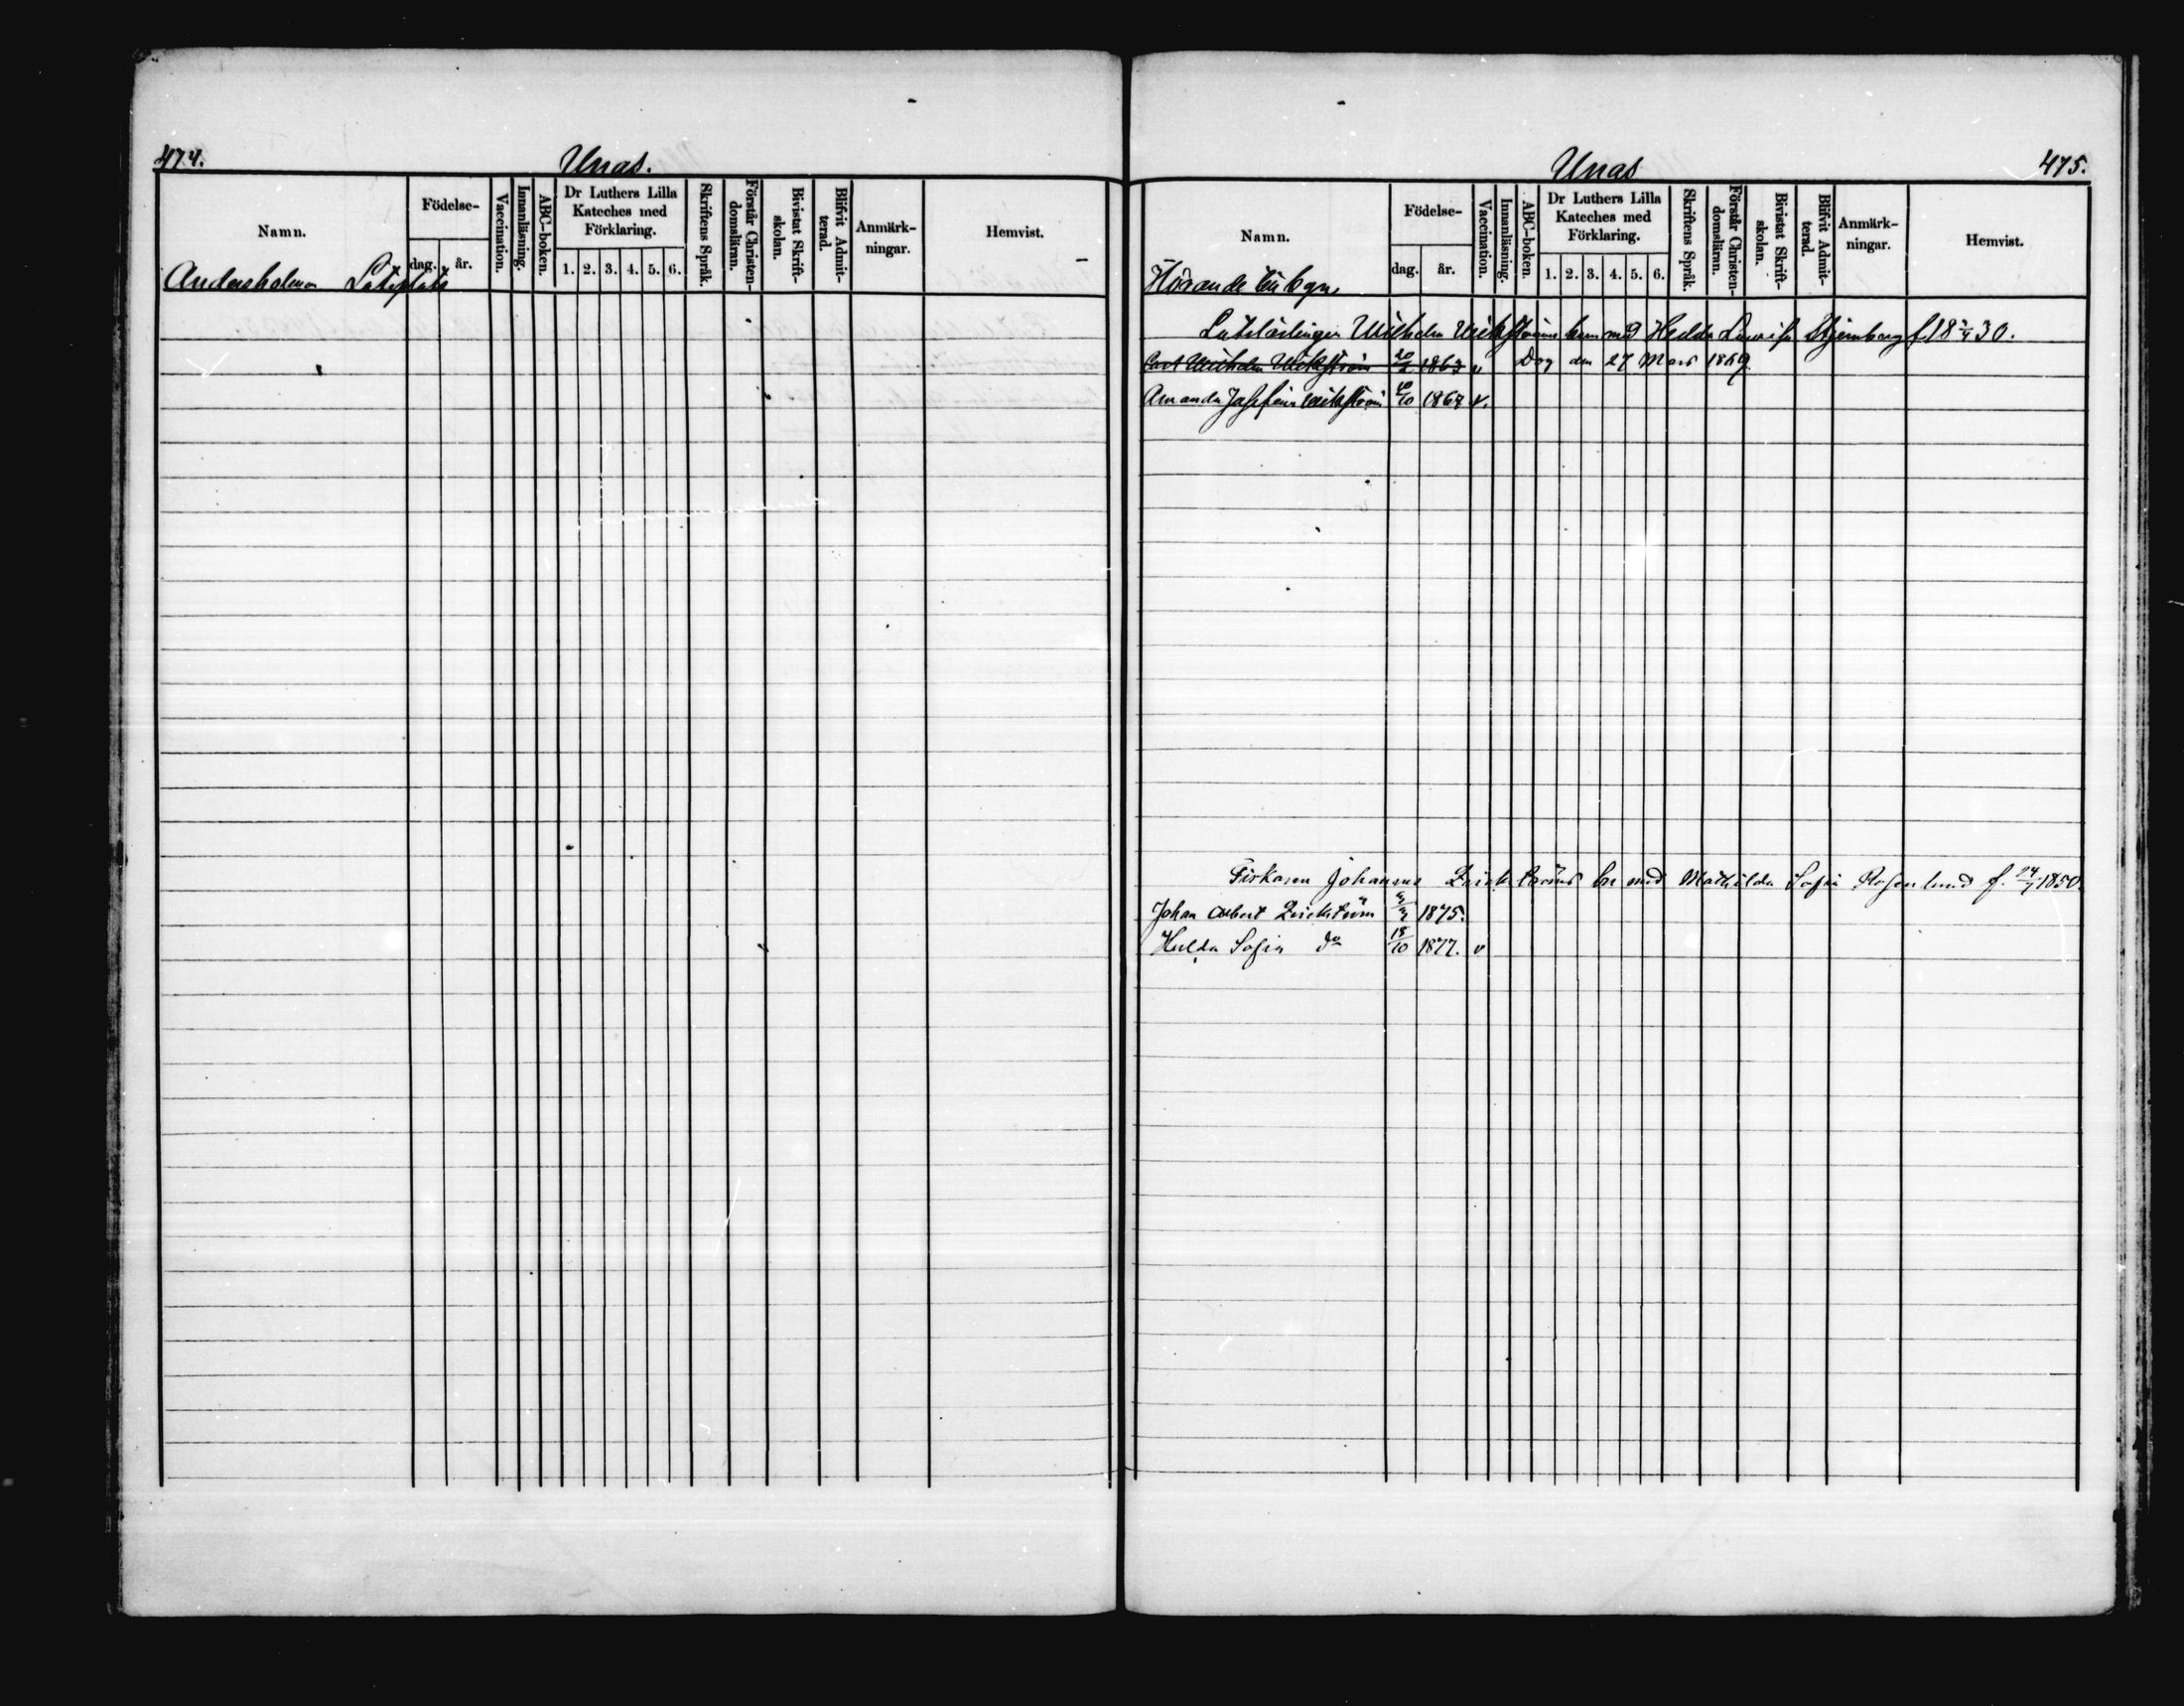 474.
Unas.
Namn.
Födelse-
dag. år.
Vaccination.
Innanläsning.
ABC-boken.
Dr Luthers Lilla
Kateches med
Förklaring.
1. 2. 3. 4. 5. 6.
Skriftens Språk.
Förstår Christen-
domsläran.
Bivistat Skrift-
skolan.
Blifvit Admit-
terad.
Anmärk-
ningar.
Hemvist.
Andersholmen
Unas
475.
Namn.
Födelse-
dag. år.
Vaccination.
Innanläsning.
ABC-boken.
Dr Luthers Lilla
Kateches med
Förklaring.
1. 2. 3. 4. 5. 6.
Skriftens Språk.
Förstår Christen-
domsläran.
Bivistat Skrift-
skolan.
Blifvit Admit-
terad.
Anmärk-
ningar.
Hemvist.
Hörande till byn
Wilhelm Wikströms barn med Hedda Lovisa Stjernberg f 18 30.
Carl Wilhelm Wikström 1863 v Dog den 27 Mars 1869
Amanda Josefina Wikström 1867 v.
Fiskaren Johannes bn med Mathilda Sofia Rosenlund f. 24/7 1850
Johan Albert 1875.
Hulda Sofia do 18/10 1877. v